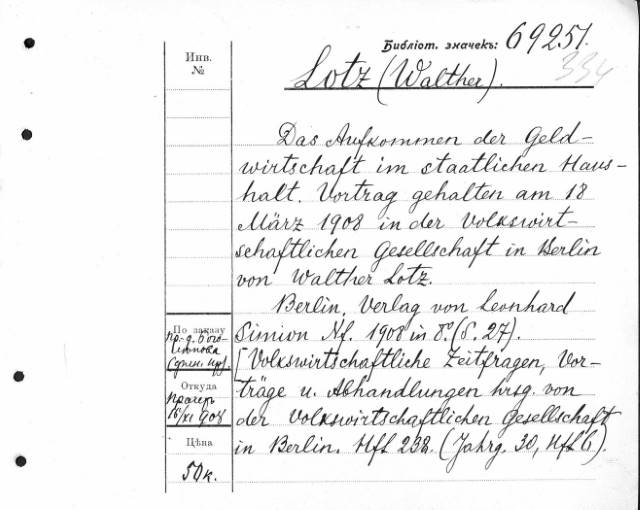 Библіот. значекъ: 69251.
334
Инв.
№
Lotz (Walther).
Das Aufkommen der Geld-
wirtschaft im staatlichen Haus-
halt. Vortrag gehalten am 18
März 1908 in der Volkswirt-
schaftlichen Gesellschaft in Berlin
von Walther Lotz.
Berlin, Verlag von Leonhard
Simion Nf. 1908 in 8º. (S. 27).
[Volkswirtschaftliche Zeitfragen, Vor-
träge u. Abhandlungen hrsg. von
der Volkswirtschaftlichen Gesellschaft
in Berlin. Hft. 238. (Jahrg. 30, Hft 6).
По заказу
Откуда
Прагеръ
16/XI 908
Цѣна
50 к.